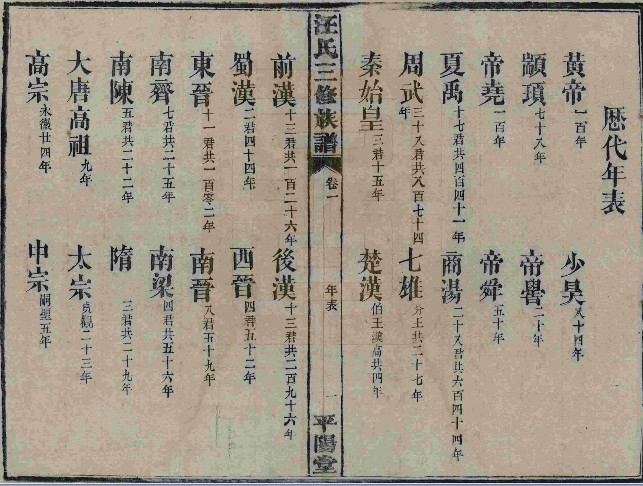 歷代年表
黃帝 一百年 少昊 八十四年
顓頊 七十八年 帝嚳 二十年
帝堯 一百年 帝舜 五十年
夏禹 十七君共四百四十一年 商湯 二十八君共六百四十四年
周武 三十八君共八百七十四年 七雄 分王共二十七年
秦始皇 三君十五年 楚漢 伯王漢高共四年
汪氏三修族譜 卷一 年表 一 平陽堂
前漢 十三君共一百二十六年 後漢 十三君共二百九十六年
蜀漢 二君四十四年 西晉 四君五十二年
東晉 十一君共一百零二年 南晉 八君五十九年
南齊 七君共二十五年 南梁 四君共五十六年
南陳 五君共二十二年 隋 三君共二十九年
大唐高祖 九年 太宗 貞觀二十三年
高宗 永徽廿四年 中宗 嗣聖五年